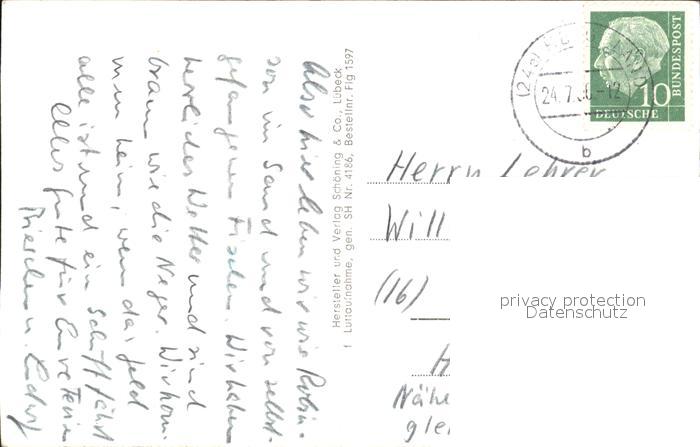 Also hier leben wir wie Robin-
son im Sand und von selbst-
gefangenen Fischen. Wir haben
herrliches Wetter und sind
braun wie die Neger. Wir kom-
men heim, wenn das Geld
alle ist und ein Schiff fährt
Alles gute für Eure Ferien
u. Ludwig
Hersteller und Verlag Schöning & Co., Lübeck
f Luftaufnahme, gen. SH Nr. 4186, Bestellnr. Flg 1597
24.7.
-12
b
10
DEUTSCHE
BUNDESPOST
Herrn Lehrer
Will
(16)
privacy protection
Datenschutz
H
Nähe
glei